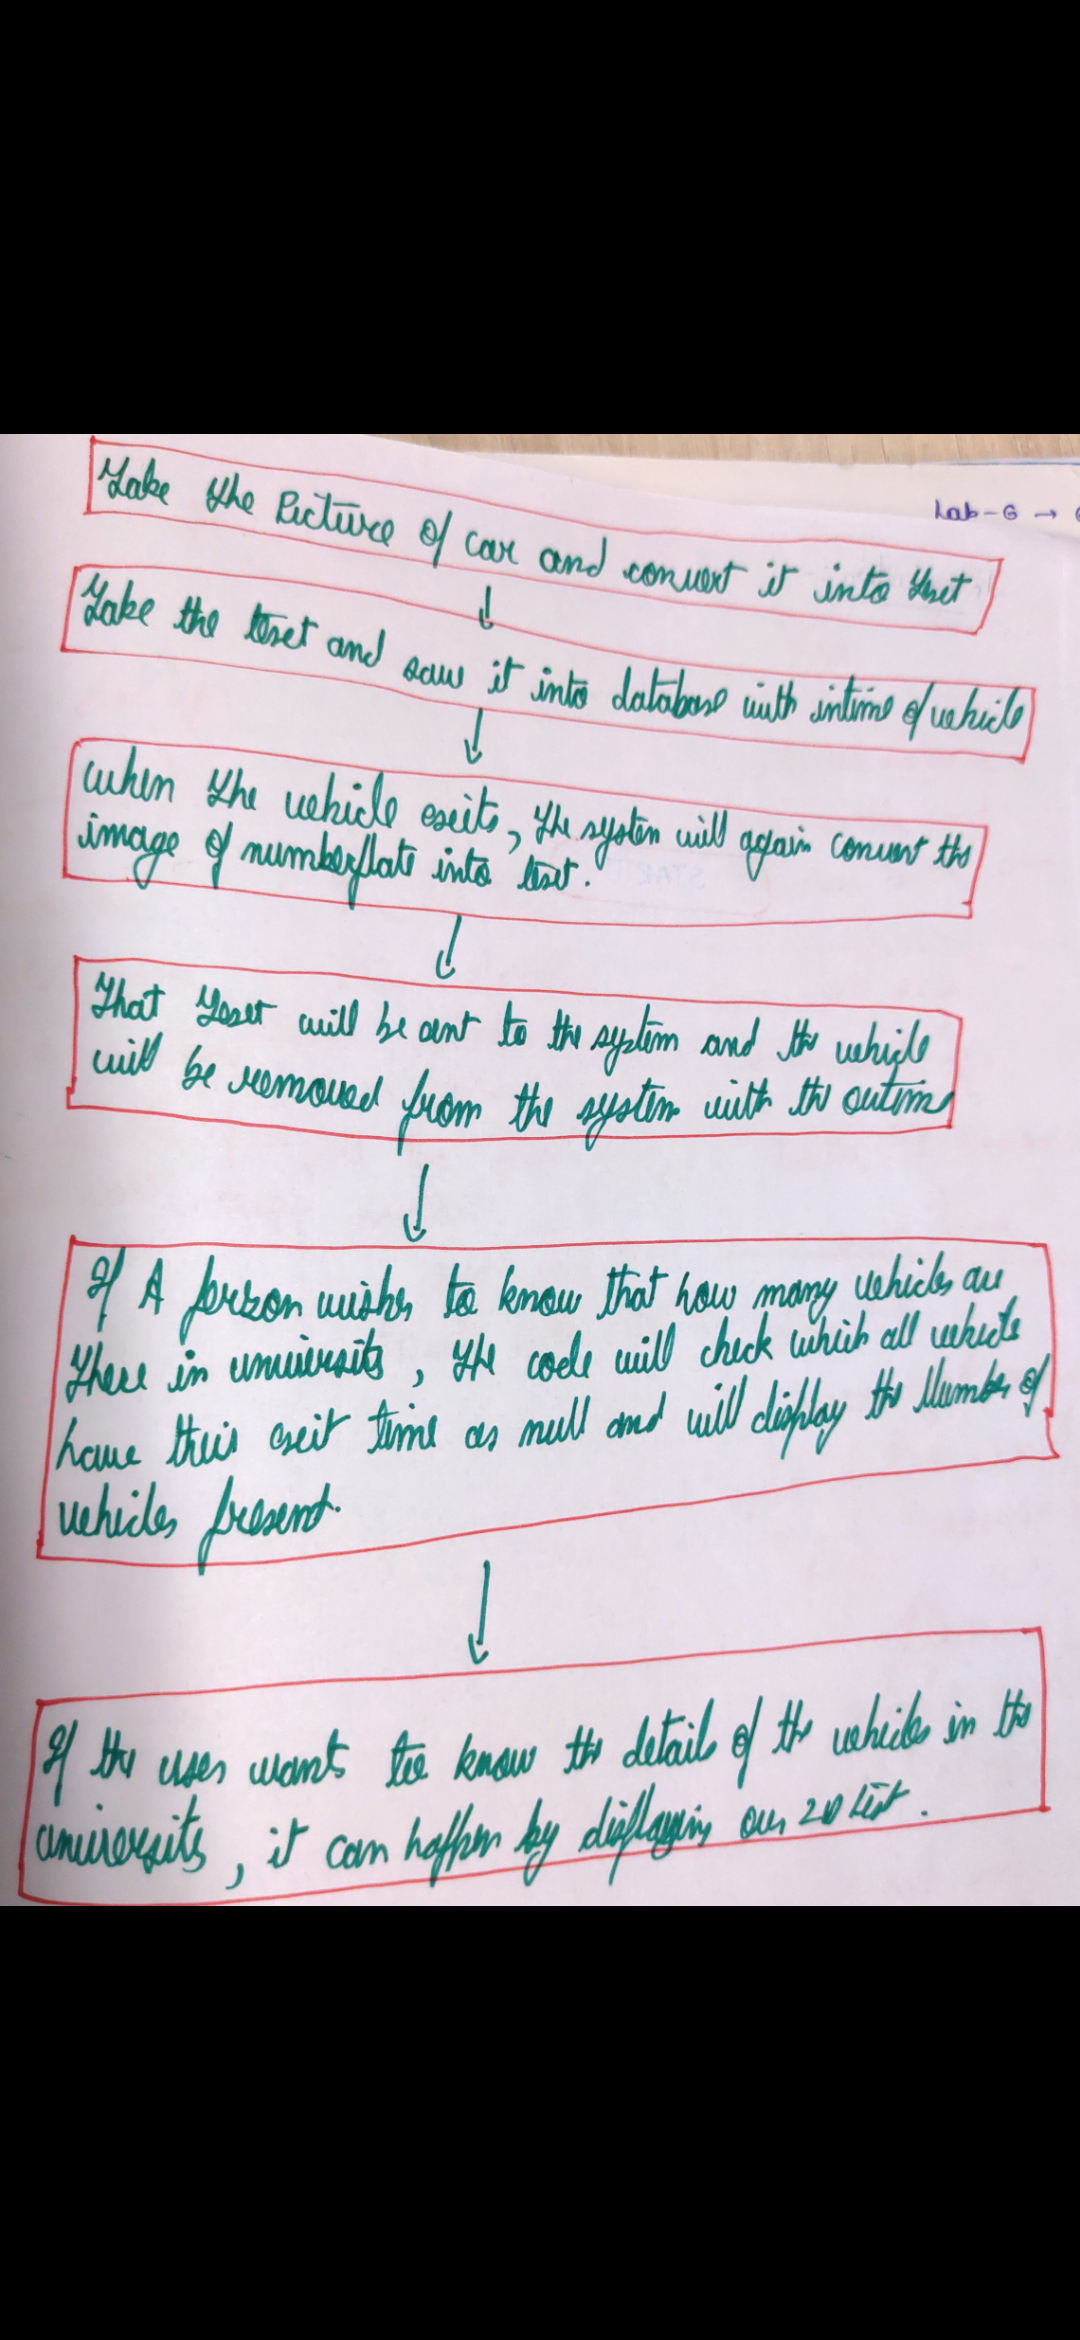 Lab-6 →
Take the Picture of car and convert it into text
Take the text and save it into database with intime of vehicle
When the vehicle exits, the system will again convert the
image of numberplate into text.
That text will be sent to the system and the vehicle
will be removed from the system with the outime
If A person wishes to know that how many vehicles are
there in university, the code will check which all vehicle
have their exit time as null and will display the Number of
vehicles present.
If the user wants to know the details of the vehicles in the
university, it can happen by displaying our 2D list.